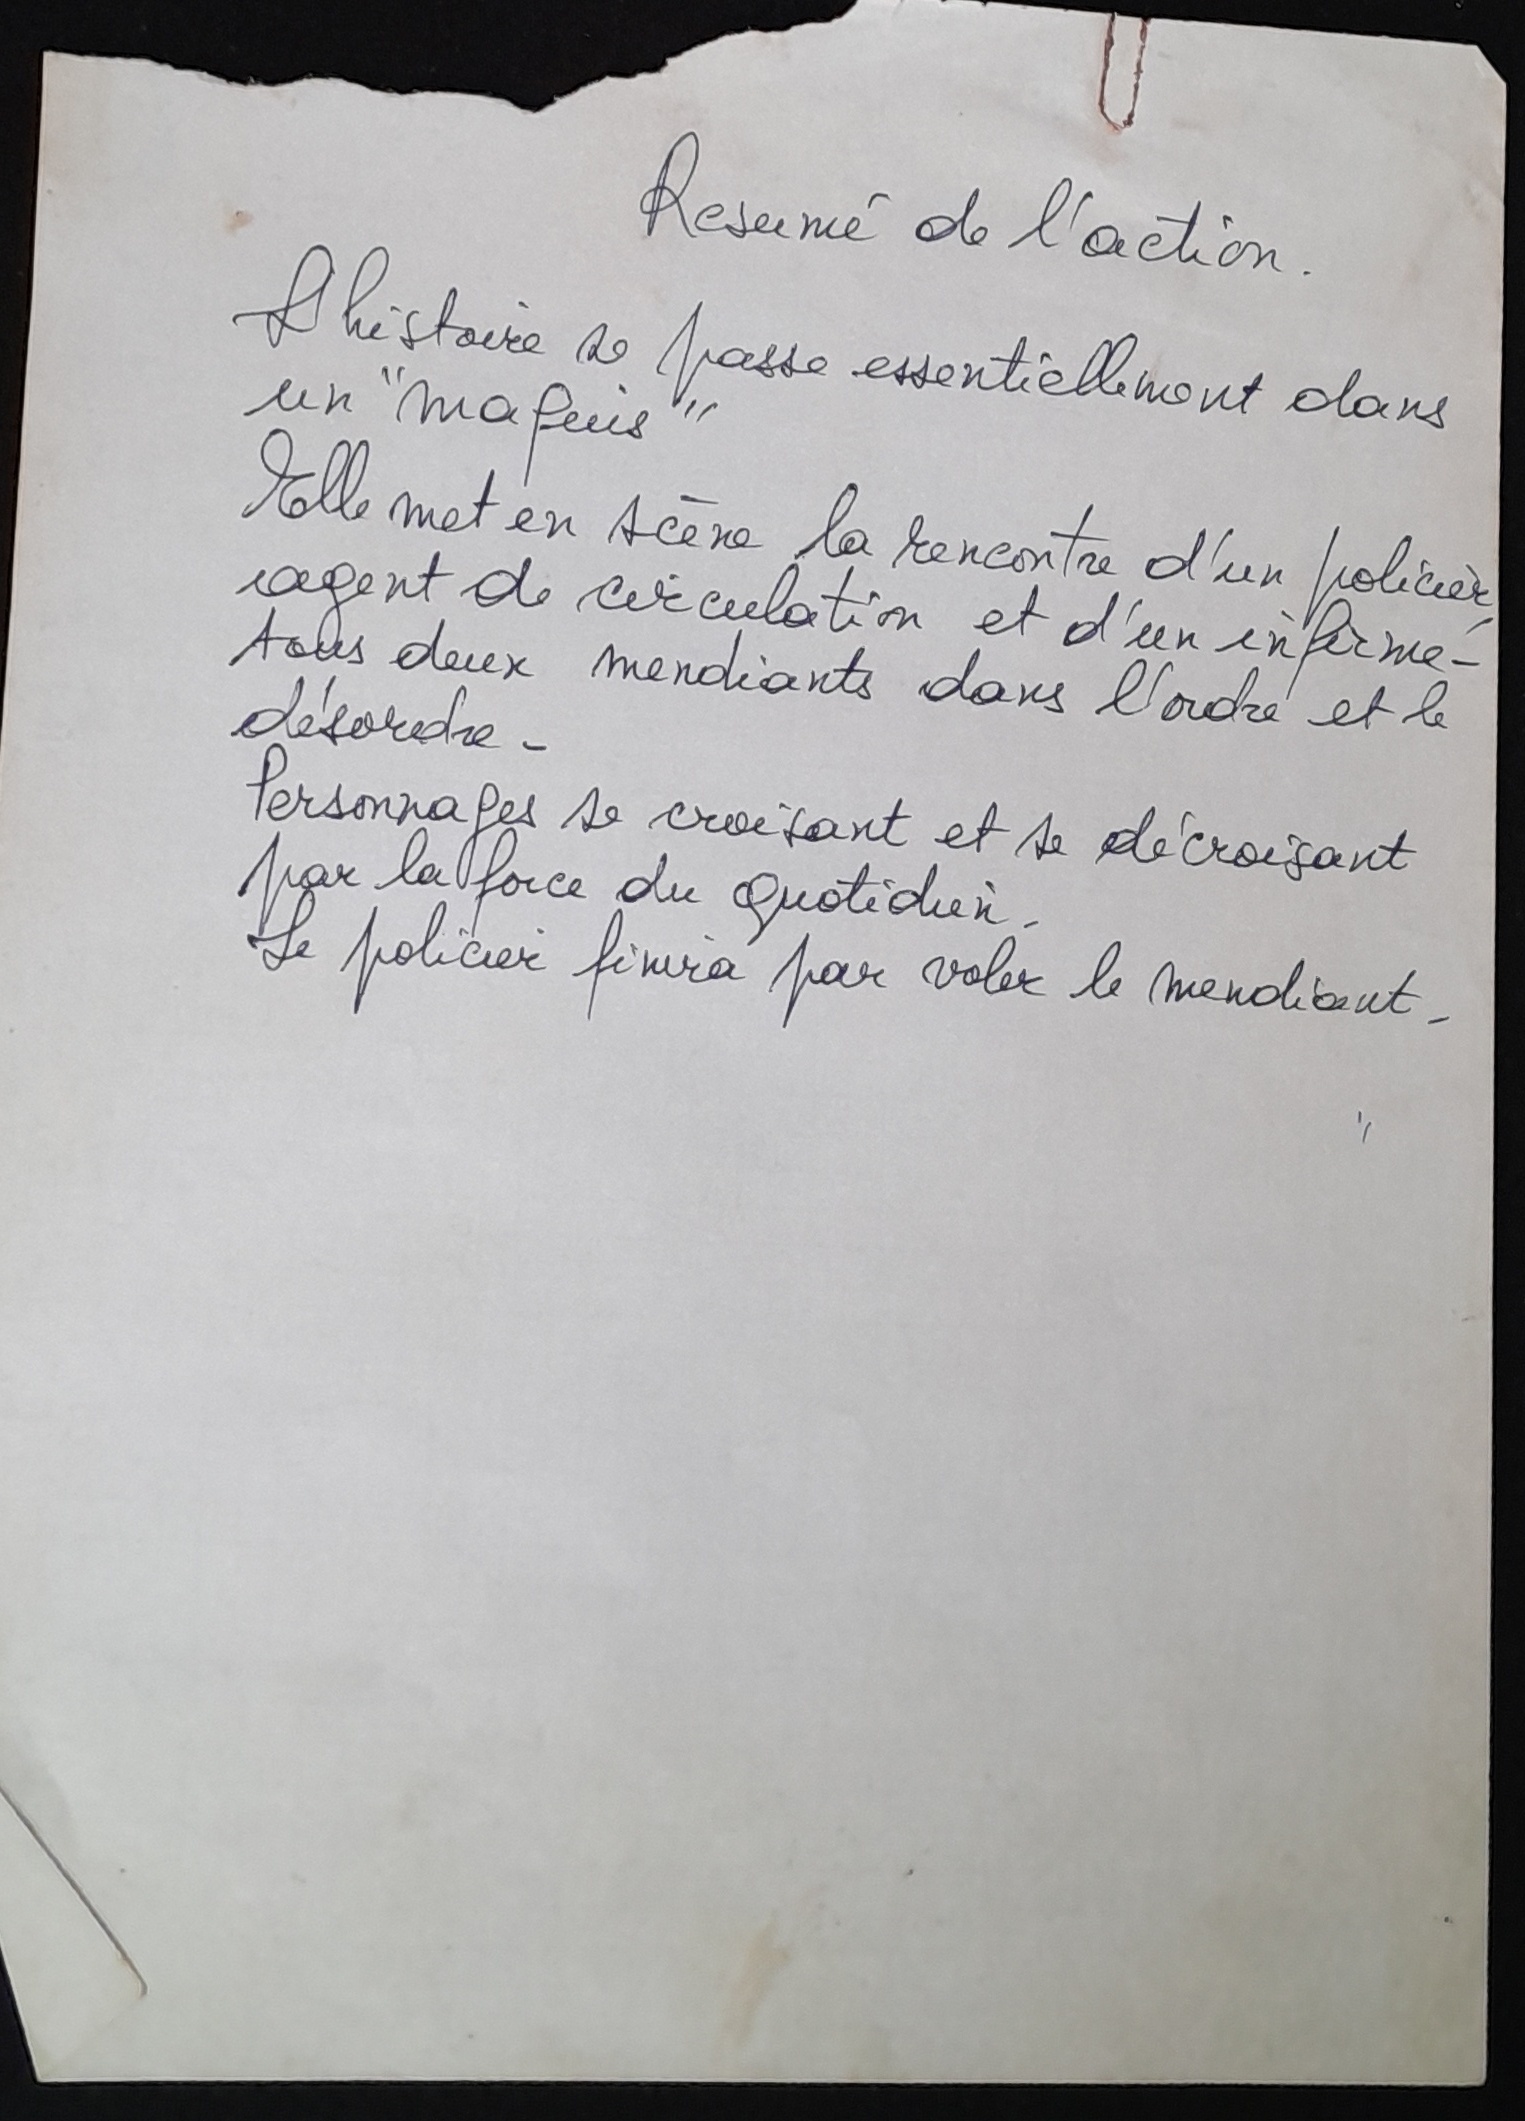 Resumé de l'action.
L'histoire se passe essentiellement dans
un "maquis"
Elle met en scène la rencontre d'un policier,
agent de circulation et d'un infirme -
tous deux mendiants dans l'ordre et le
désordre -
Personnages se croisant et se décroisant
par la force du quotidien -
Le policier finira par voler le mendiant -